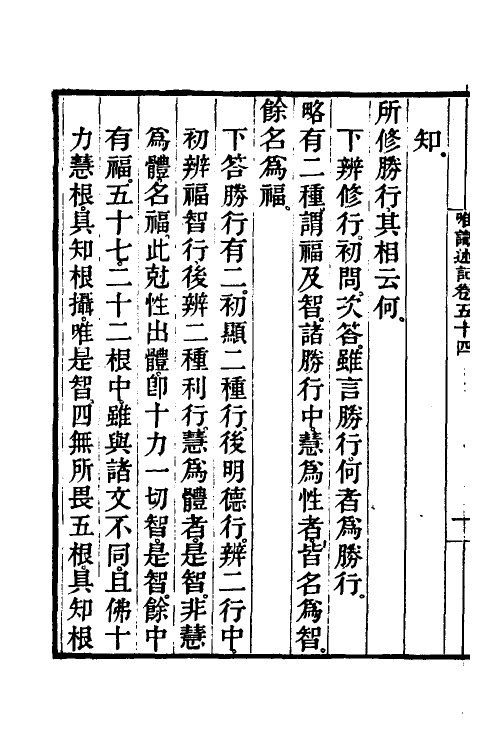 唯識述記卷五十四
十一
知。
所修勝行其相云何。
下辨修行初問次答雖言勝行何者爲勝行。
略有二種謂福及智諸勝行中慧爲性者皆名爲智。
餘名爲福。
下答勝行有二初顯二種行後明德行辨二行中
初辨福智行後辨二種利行慧爲體者是智非慧
爲體名福此尅性出體卽十力一切智是智餘中
有福五十七二十二根中雖與諸文不同且佛十
力慧根具知根攝唯是智四無所畏五根具知根